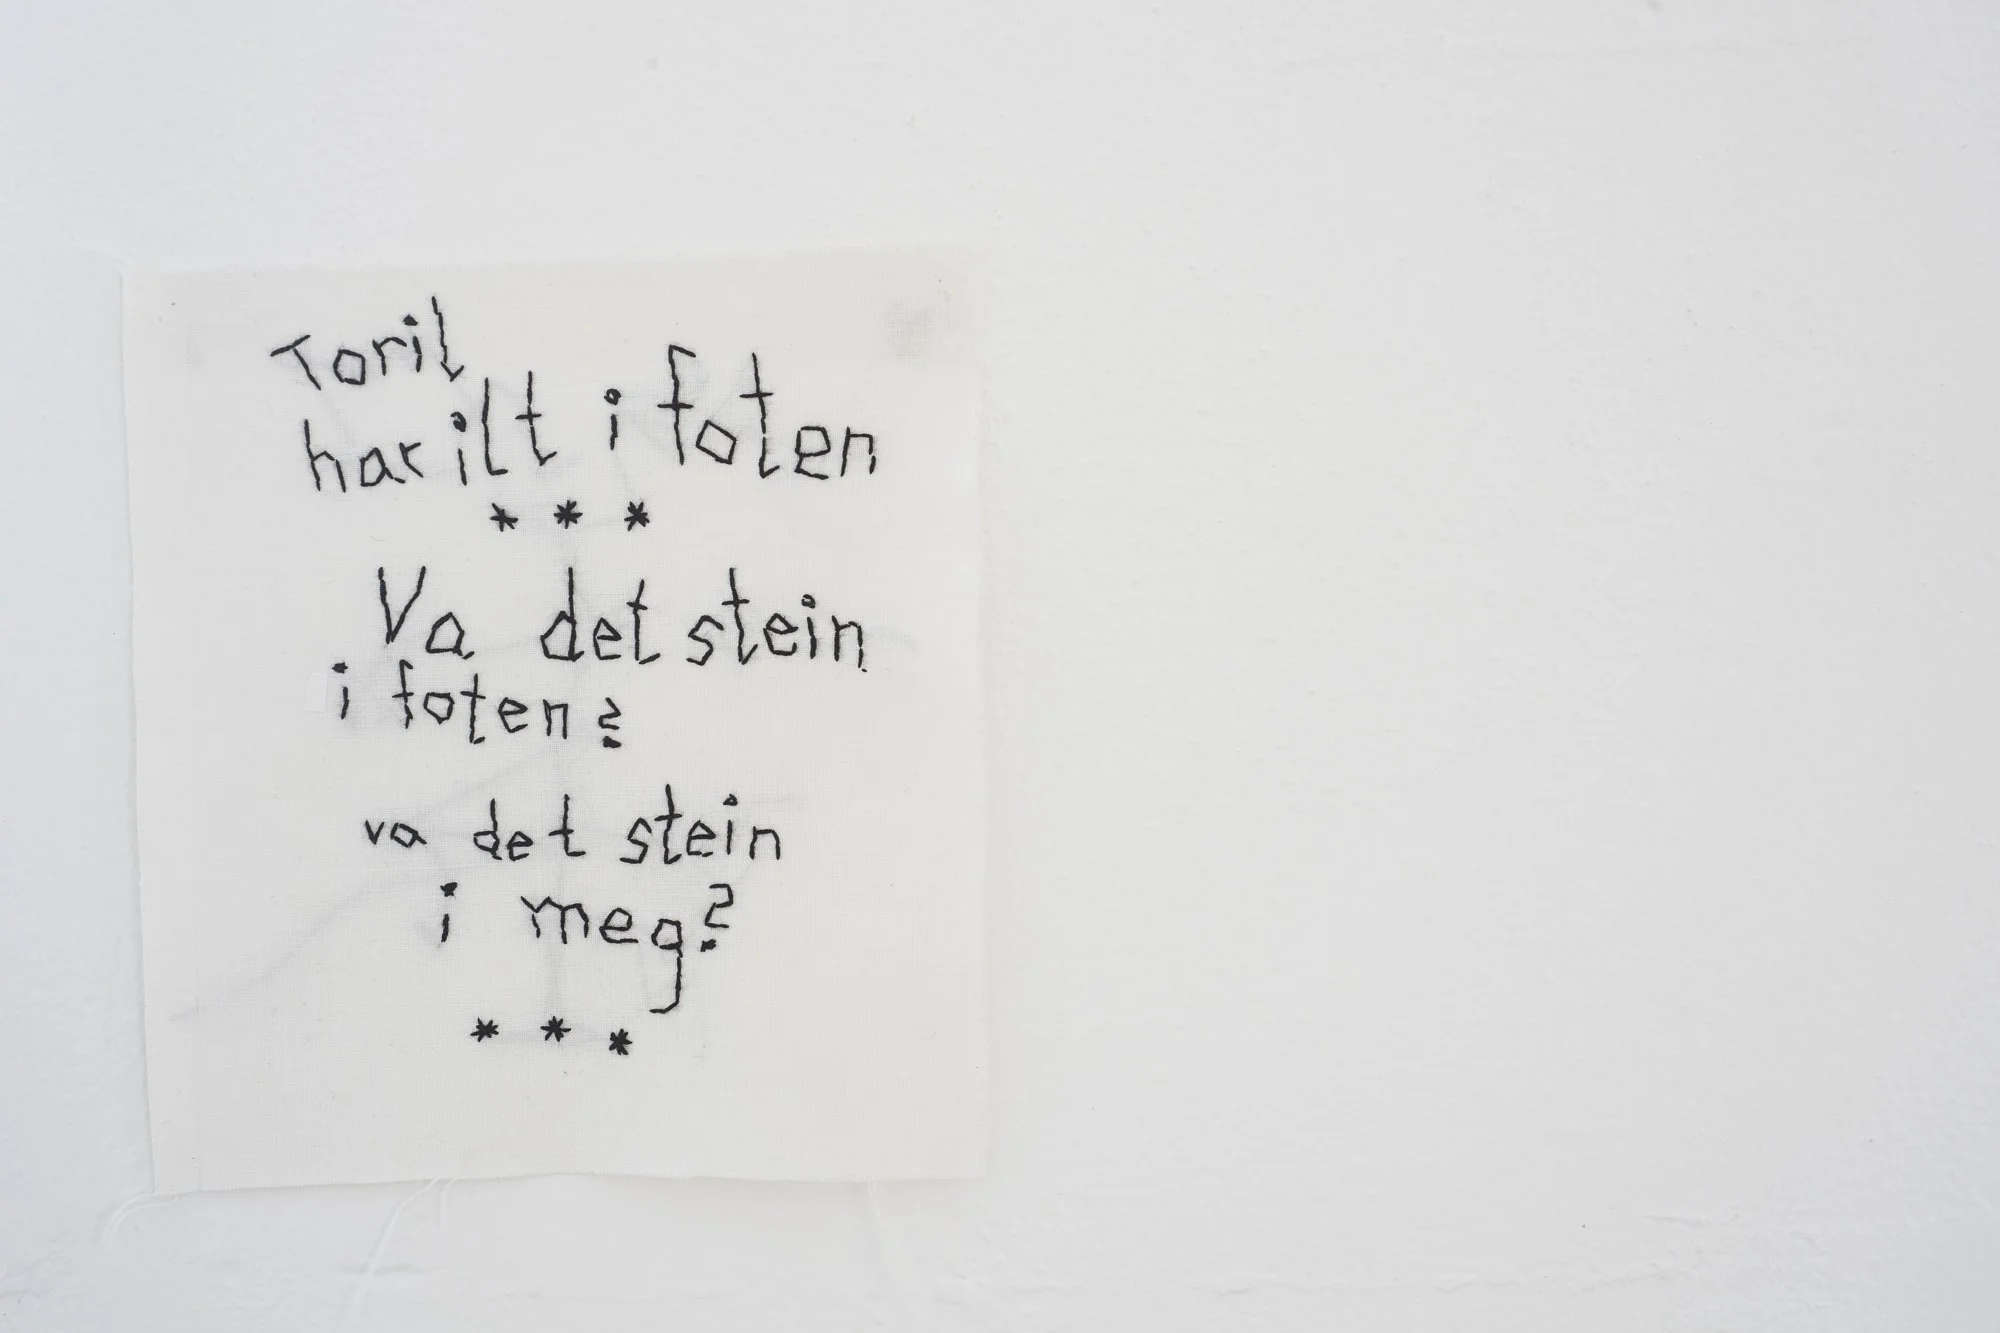 Toril
har ilt i foten
* * *
Va det stein
i foten?
va det stein
i meg?
* * *